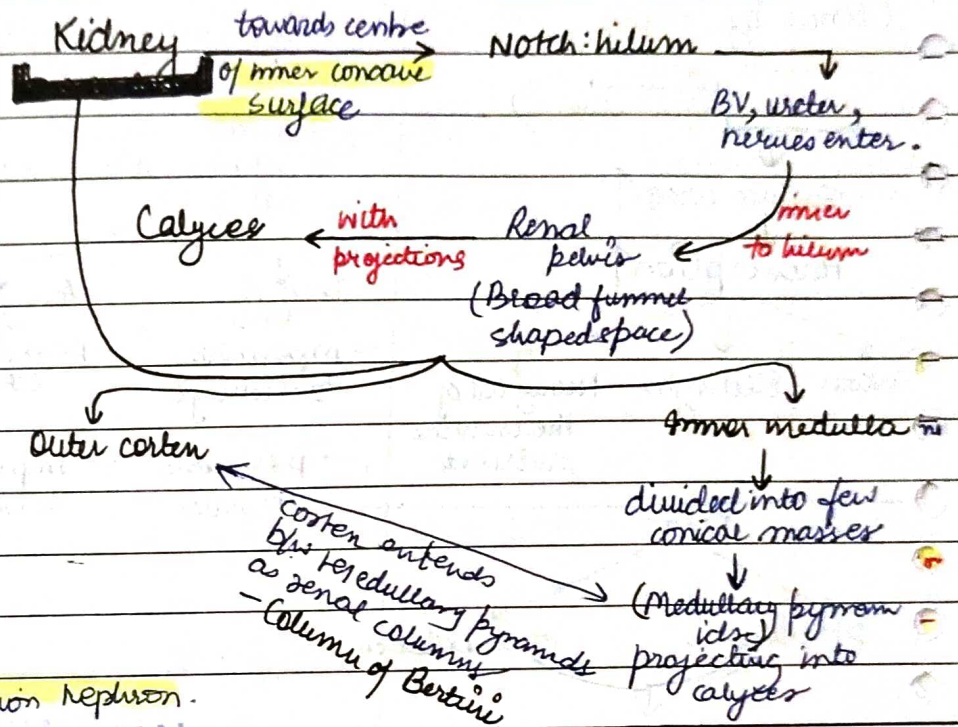 Kidney
towards centre
of inner concave
surface
Notch: hilum
BV, ureter,
nerves enter.
inner
to hilum
Renal
pelvis
(Broad funnel
shaped space)
with
projections
Calyces
Outer cortex
Inner medulla
divided into few
conical masses
(Medullary pyram
ids)
projecting into
calyces
cortex extends
b/w medullary pyramids
as renal columns
- Column of Bertini
nephron.